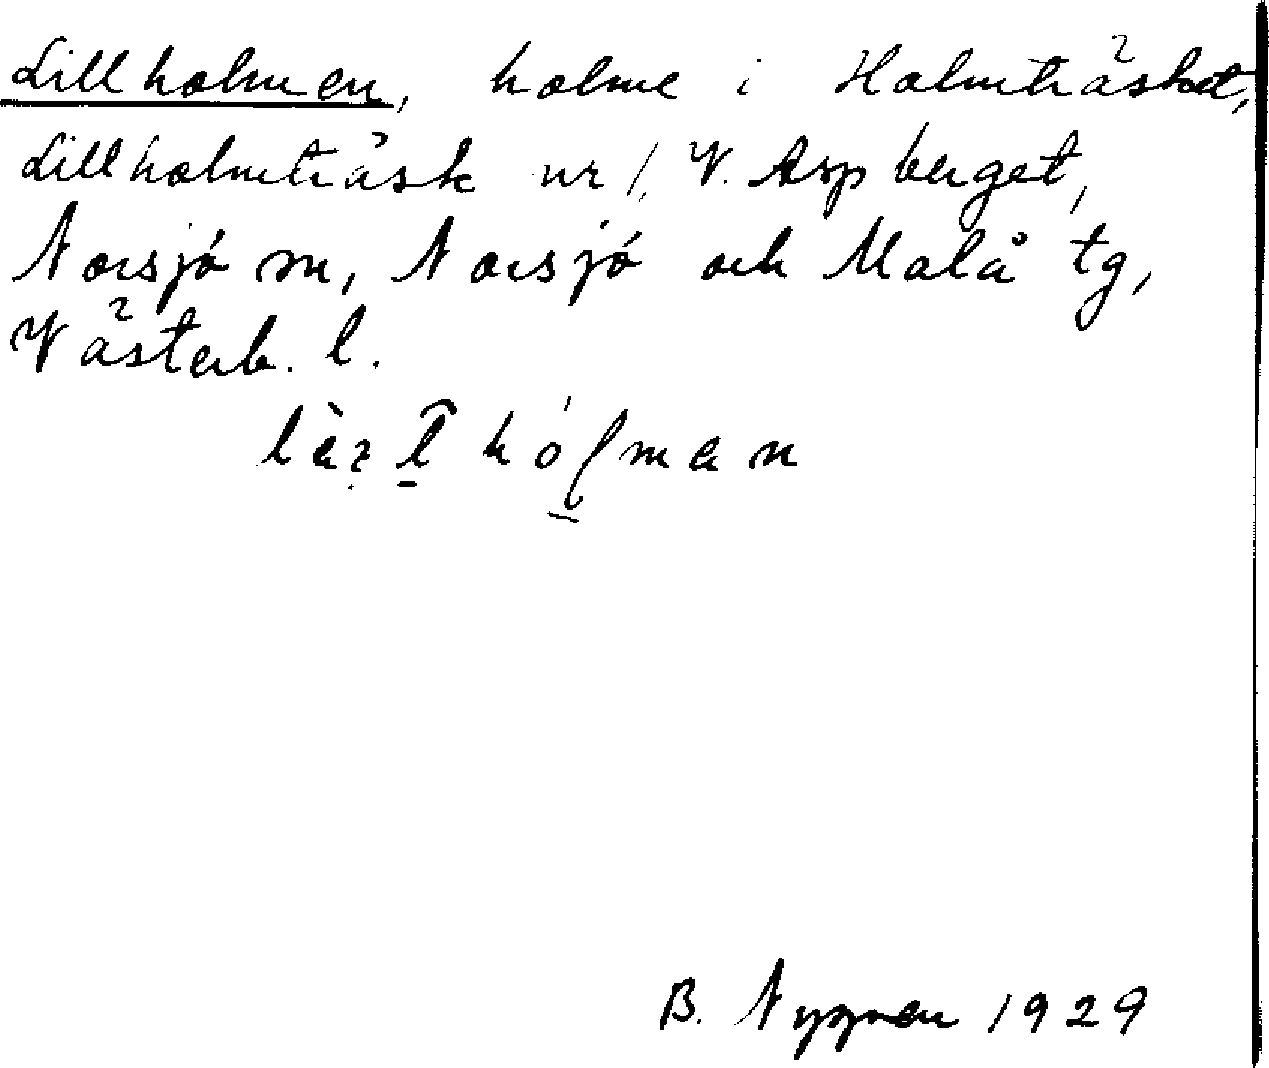 Lillholmen, holme i Holmträsket,
Lillholmträsk nr 1, V. Aspberget,
Norsjö sn, Norsjö och Malå tg,
Västerb. l.
B. Nygren 1929